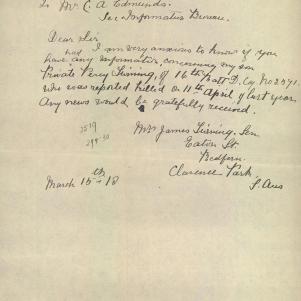 To Mr C. A Edmunds.
Sec Information Bureau.
Dear Sir
had I am very anxious to know if you
have any Information concerning my son
Private Percy Tinning, of 16th Batt D. Coy No 2571.
who was reported killed on 11th April of last year
Any news would be gratefully received.
Mrs James Tinning, Sen
Eaton St.
Redfern.
Clarence Park.
S. Aus
March 15th 18